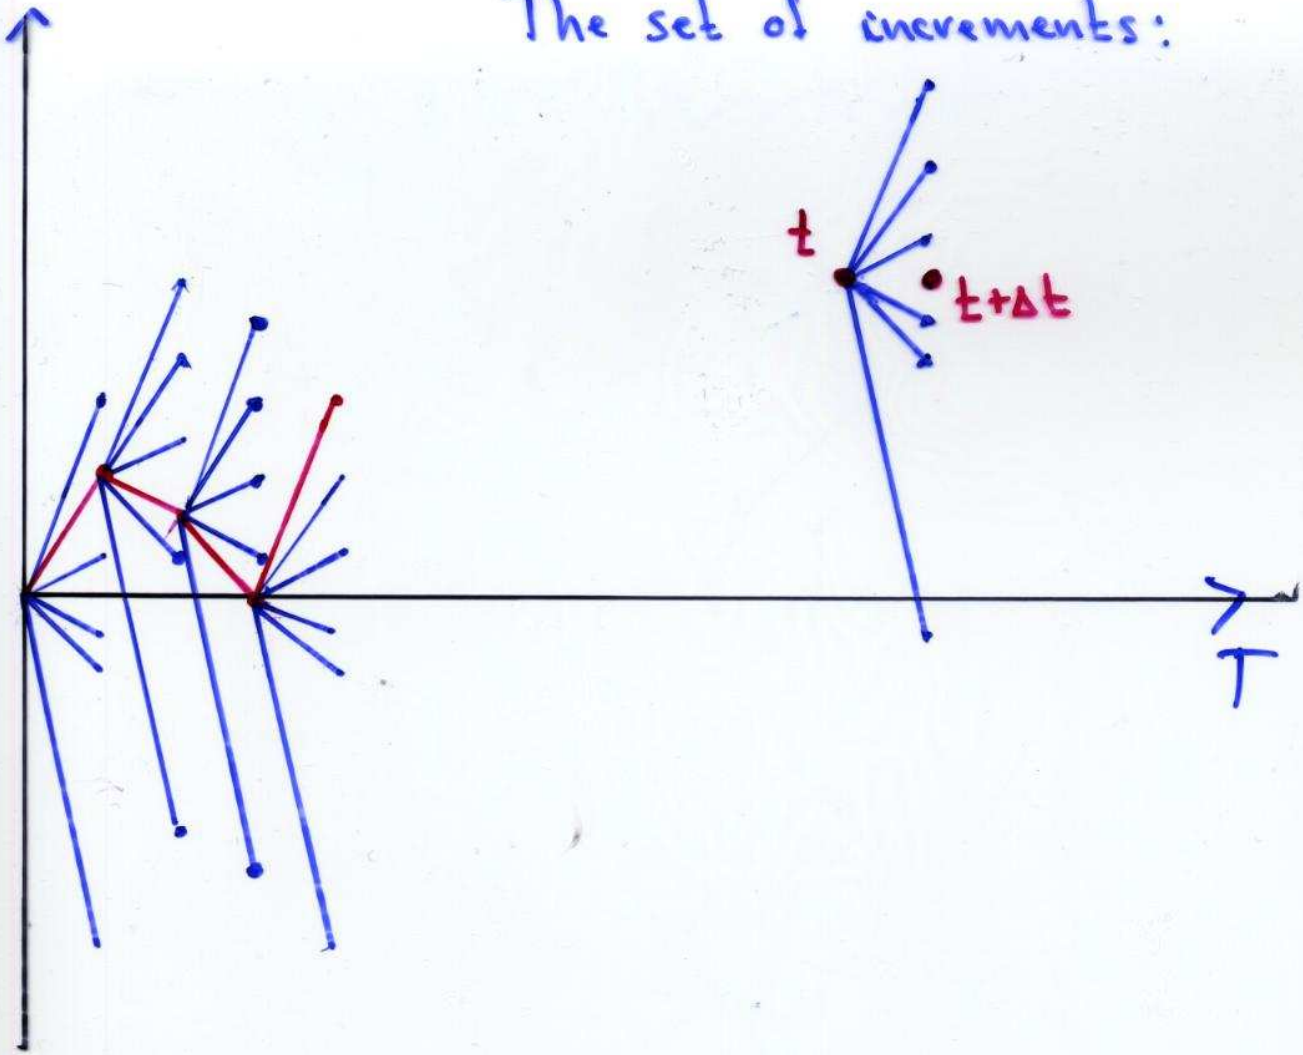 The set of increments:
t
t+Δt
T